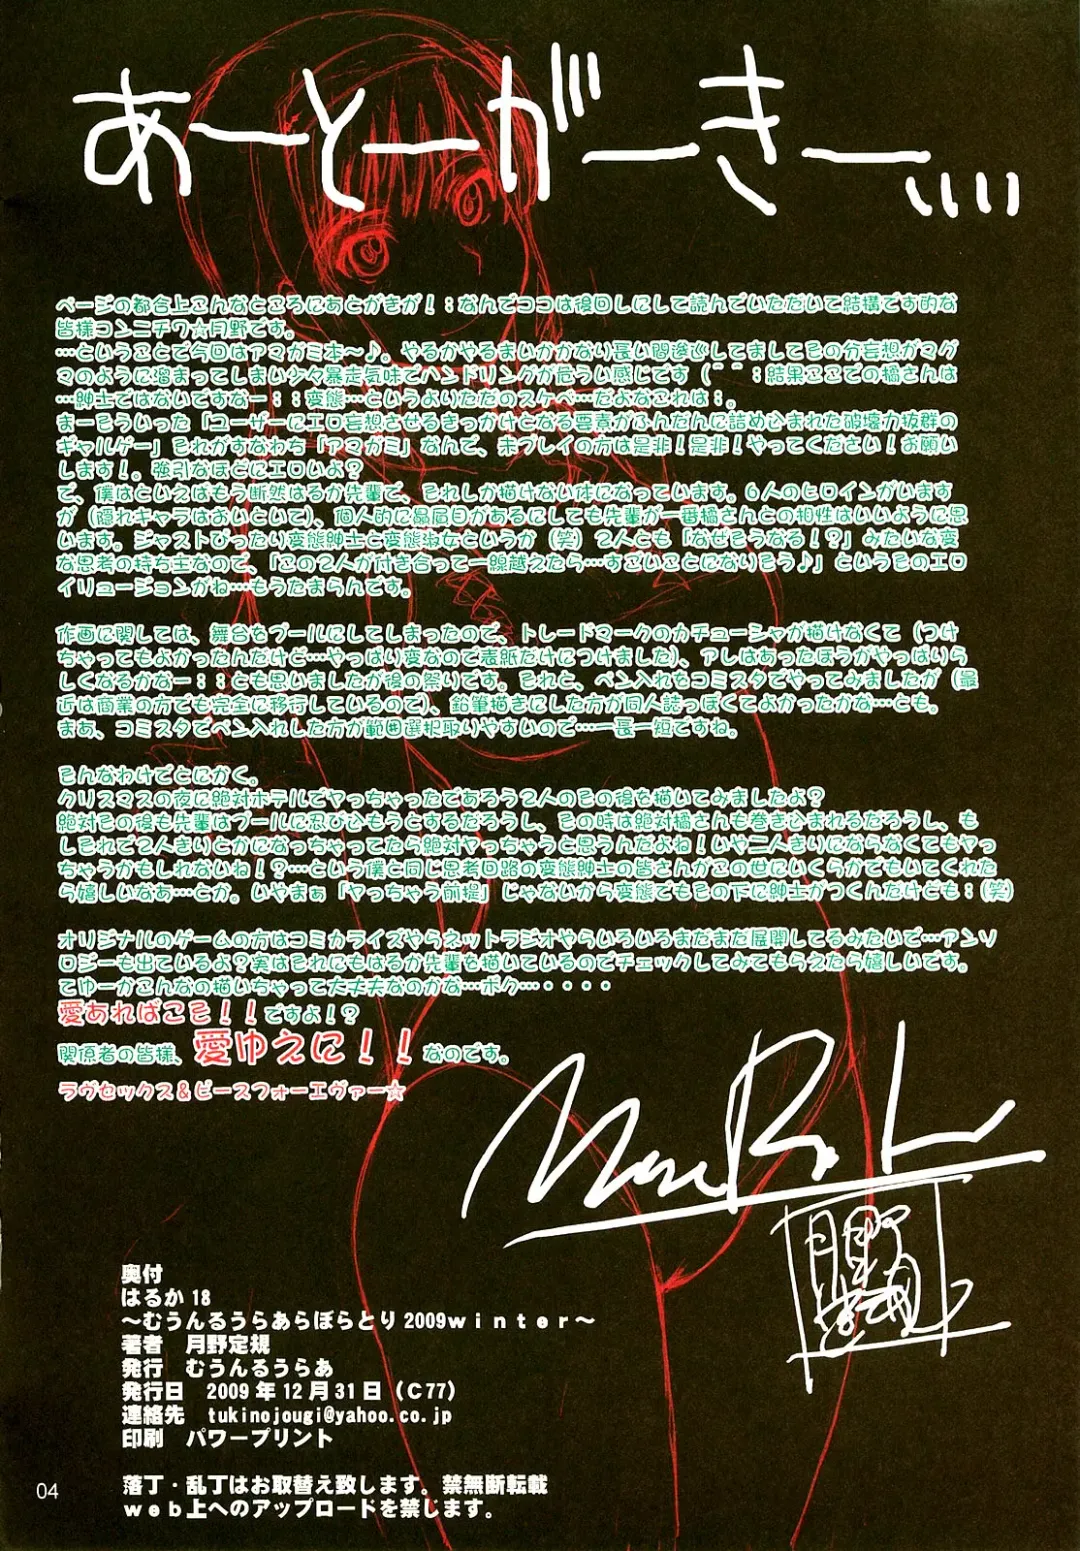 あーとーがーきー、、、、
ページの都合上こんなところにあとがきが！：なんでココは後回しにして読んでいただいて結構です的な
皆様コンニチワ☆月野です。
…ということで今回はアマガミ本～♪。やるかやるまいかかなり長い間逡巡してましてその分妄想がマグ
マのように溜まってしまい少々暴走気味でハンドリングが危うい感じです（＾＾：結果ここでの橘さんは
…紳士ではないですなー：：変態…というよりただのスケベ…だよなこれは：。
まーそういった「ユーザーにエロ妄想させるきっかけとなる要素がふんだんに詰め込まれた破壊力抜群の
ギャルゲー」それがすなわち「アマガミ」なんで、未プレイの方は是非！是非！やってください！お願い
します！。強引なほどにエロいよ？
で、僕はといえばもう断然はるか先輩で、それしか描けない体になっています。6人のヒロインがいます
が（隠れキャラはおいといて）、個人的に贔屓目があるにしても先輩が一番橘さんとの相性はいいように思
います。ジャストぴったり変態紳士と変態淑女というか（笑）２人とも「なぜそうなる！？」みたいな変
な思考の持ち主なので、「この２人が付き合って一線越えたら…すごいことになりそう♪」という私のエロ
イリュージョンがね…もうたまらんです。
作画に関しては、舞台をプールにしてしまったので、トレードマークのカチューシャが描けなくて（つけ
ちゃってもよかったんだけど…やっぱり変なので表紙だけにつけました）、アレはあったほうがやっぱりら
しくなるかなー：：とも思いましたが後の祭りです。それと、ペン入れをコミスタでやってみましたが（最
近は商業の方でも完全に移行しているので）、鉛筆描きにした方が同人誌っぽくてよかったかな…とも。
まあ、コミスタでペン入れした方が範囲選択取りやすいので…一長一短ですね。
そんなわけでとにかく。
クリスマスの夜に絶対ホテルでヤっちゃったであろう２人のその後を描いてみましたよ？
絶対その後も先輩はプールに忍びこもうとするだろうし、その時は絶対橘さんも巻き込まれるだろうし、も
しそれで２人きりとかになっちゃってたら絶対ヤっちゃうと思うんだよね！いや二人きりにならなくてもヤっ
ちゃうかもしれないね！？…という僕と同じ思考回路の変態紳士の皆さんがこの世にいくらかでもいてくれた
ら嬉しいなあ…とか。いやまぁ「ヤっちゃう前提」じゃないから変態でもその下に紳士がつくんだけども：（笑）
オリジナルのゲームの方はコミカライズやらネットラジオやらいろいろまだまだ展開してるみたいで…アンソ
ロジーも出ているよ？実はそれにもはるか先輩を描いているのでチェックしてみてもらえたら嬉しいです。
てゆーかこんなの描いちゃって大丈夫なのかな…ボク…・・・・
愛あればこそ！！ですよ！？
関係者の皆様、愛ゆえに！！なのです。
ラヴセックス＆ピースフォーエヴァー☆
奥付
はるか18
～むうんるうらあらぼらとり2009winter～
著者　月野定規
発行　むうんるうらあ
発行日　2009年12月31日（C77）
連絡先　tukinojougi@yahoo.co.jp
印刷　パワープリント
落丁・乱丁はお取替え致します。禁無断転載
web上へのアップロードを禁じます。
04